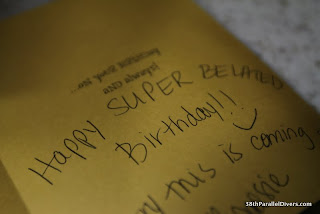 ...on your Birthday
AND always!
Happy SUPER BELATED
Birthday!!
this is coming
38thParallelDivers.com